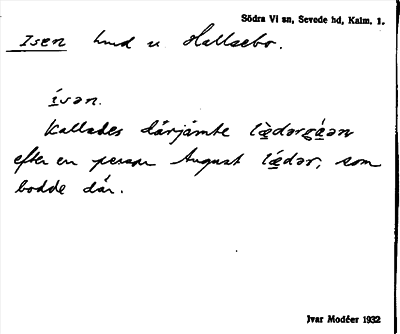 Södra Vi sn, Sevede hd, Kalm. l.
Isen hmd u. Hallsebo.
ísən.
Kallades därjämte
efter en person August som
bodde där.
Ivar Modéer 1932